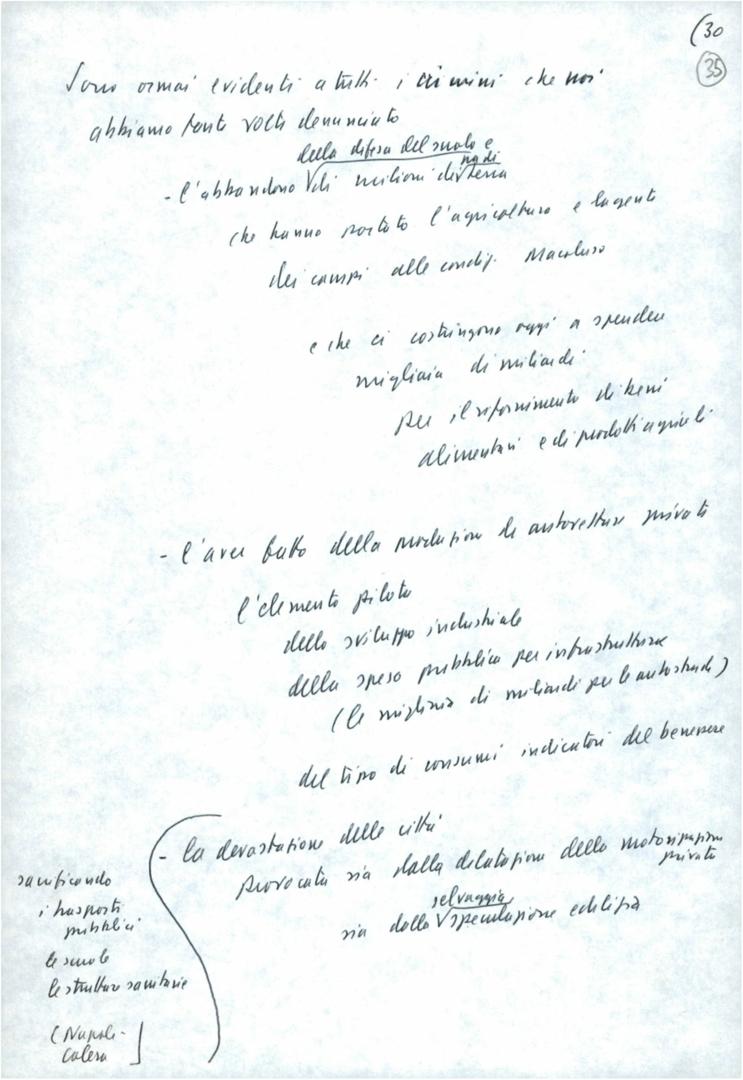 (30
35
Sono ormai evidenti a tutti i crimini che noi
abbiamo tante volte denunciato
della difesa del suolo e
- l'abbandono di milioni di ha di terra
che hanno portato l'agricoltura e la gente
dei campi alle condiz. Macaluso
e che ci costringono oggi a spendere
migliaia di miliardi
per il rifornimento di beni
alimentari e di prodotti agricoli
- l'aver fatto della produzione di autovetture private
l'elemento pilota
dello sviluppo industriale
della spesa pubblica per infrastrutture
(le migliaia di miliardi per le autostrade)
del tipo di consumi indicatori del benessere
- la devastazione delle città
provocata sia dalla dilatazione della motorizzazione
privata
selvaggia
sia dalla speculazione edilizia
sacrificando
i trasporti
pubblici
le scuole
le strutture sanitarie
(Napoli-
Colera]